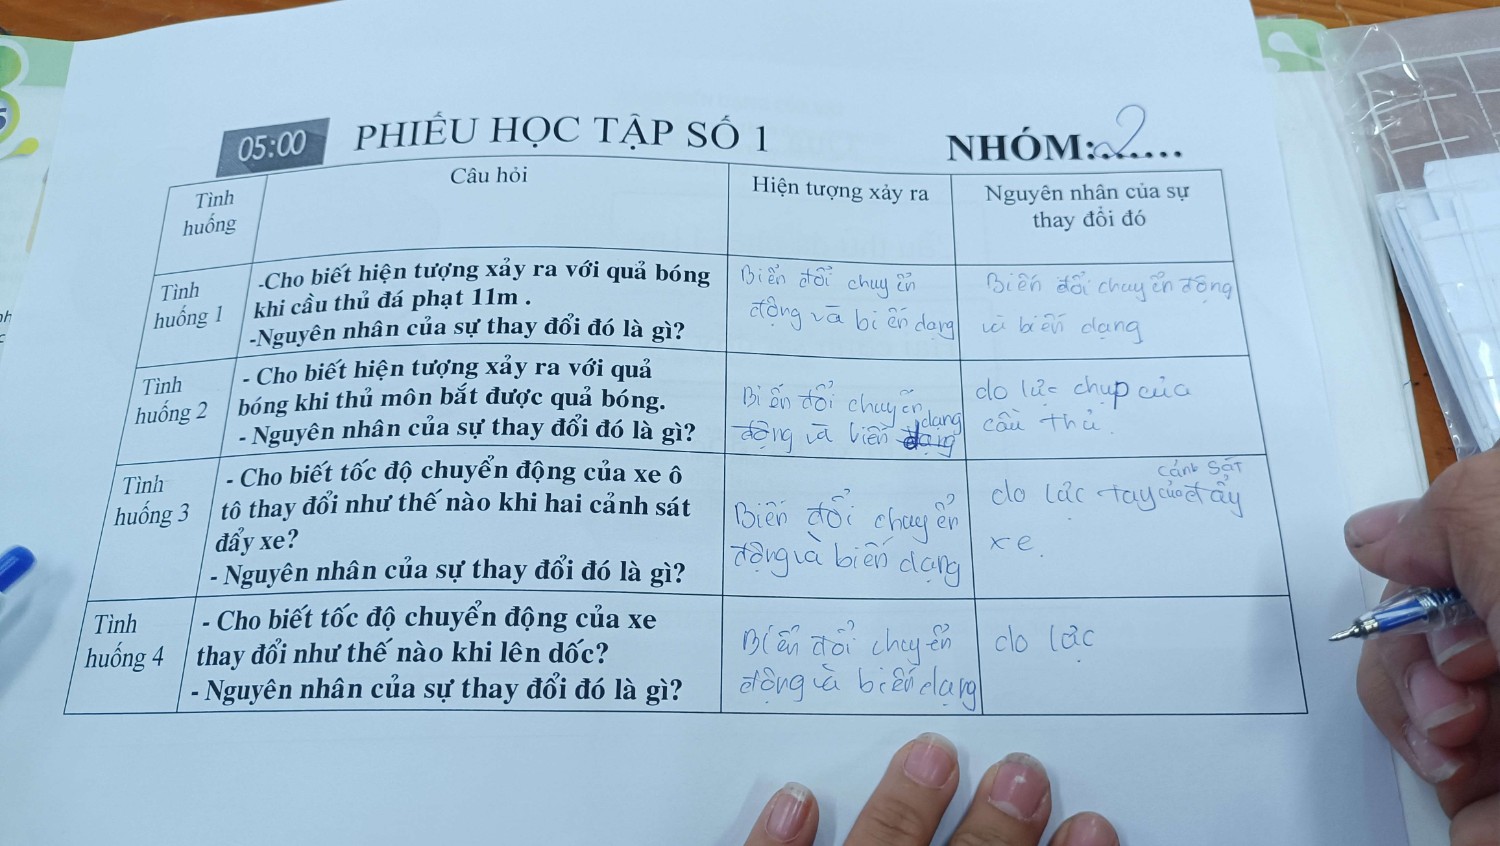 05:00 PHIẾU HỌC TẬP SỐ 1 NHÓM:2......
Tình huống
Câu hỏi
Hiện tượng xảy ra
Nguyên nhân của sự
thay đổi đó
Tình
huống 1
-Cho biết hiện tượng xảy ra với quả bóng
khi cầu thủ đá phạt 11m .
-Nguyên nhân của sự thay đổi đó là gì?
Biến đổi chuyển
động và biến dạng
Biến đổi chuyển động
và biến dạng
Tình
huống 2
- Cho biết hiện tượng xảy ra với quả
bóng khi thủ môn bắt được quả bóng.
- Nguyên nhân của sự thay đổi đó là gì?
Biến đổi chuyển
động và biến dạng
do lực chụp của
cầu thủ.
Tình
huống 3
- Cho biết tốc độ chuyển động của xe ô
tô thay đổi như thế nào khi hai cảnh sát
đẩy xe?
- Nguyên nhân của sự thay đổi đó là gì?
Biến đổi chuyển
động và biến dạng
do lực tay của cảnh sát đẩy
xe.
Tình
huống 4
- Cho biết tốc độ chuyển động của xe
thay đổi như thế nào khi lên dốc?
- Nguyên nhân của sự thay đổi đó là gì?
Biến đổi chuyển
động và biến dạng
do lực